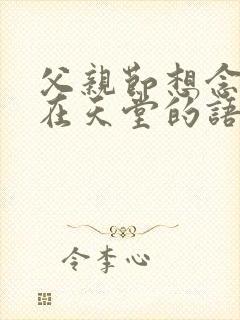 父親節想念
在天堂的語
令李心